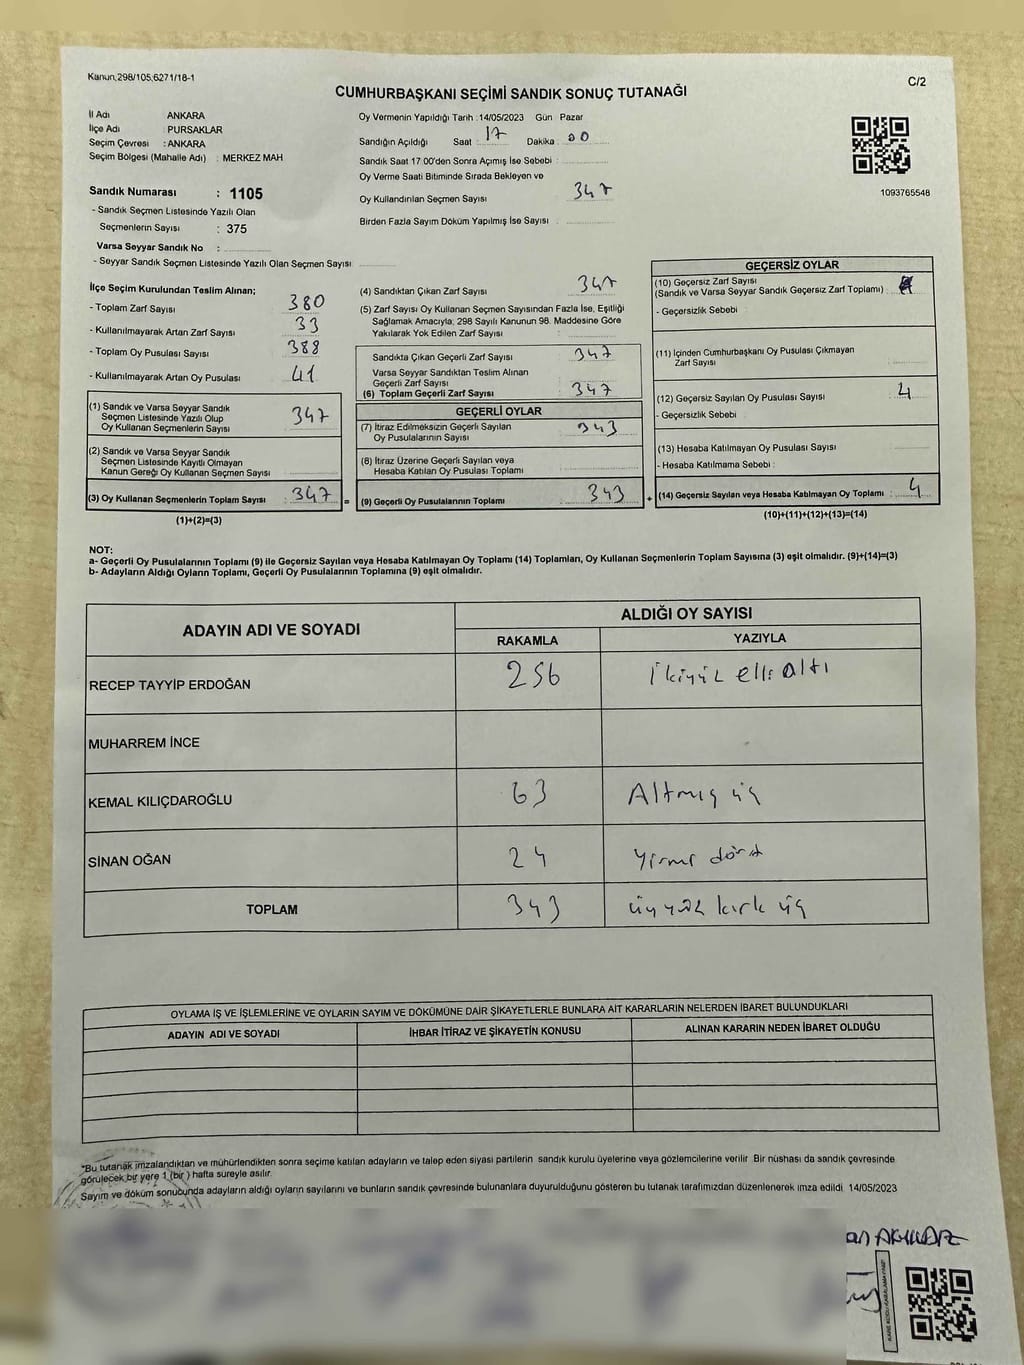 Kanun,298/105,6271/18-1
C/2
CUMHURBAŞKANI SEÇİMİ SANDIK SONUÇ TUTANAĞI
İl Adı ANKARA
İlçe Adı : PURSAKLAR
Seçim Çevresi : ANKARA
Seçim Bölgesi (Mahalle Adı) : MERKEZ MAH
Sandık Numarası : 1105
- Sandık Seçmen Listesinde Yazılı Olan
Seçmenlerin Sayısı : 375
Varsa Seyyar Sandık No :
- Seyyar Sandık Seçmen Listesinde Yazılı Olan Seçmen Sayısı:
Oy Vermenin Yapıldığı Tarih :14/05/2023 Gün : Pazar
Sandığın Açıldığı Saat : 17 Dakika : 00
Sandık Saat 17.00'den Sonra Açımış İse Sebebi :
Oy Verme Saati Bitiminde Sırada Bekleyen ve
Oy Kullandırılan Seçmen Sayısı : 347
Birden Fazla Sayım Döküm Yapılmış İse Sayısı :
1093765548
İlçe Seçim Kurulundan Teslim Alınan;
- Toplam Zarf Sayısı : 380
- Kullanılmayarak Artan Zarf Sayısı : 33
- Toplam Oy Pusulası Sayısı : 388
- Kullanılmayarak Artan Oy Pusulası : 41
(1) Sandık ve Varsa Seyyar Sandık
Seçmen Listesinde Yazılı Olup
Oy Kullanan Seçmenlerin Sayısı : 347
(2) Sandık ve Varsa Seyyar Sandık
Seçmen Listesinde Kayıtlı Olmayan
Kanun Gereği Oy Kullanan Seçmen Sayısı :
(3) Oy Kullanan Seçmenlerin Toplam Sayısı : 347 =
(1)+(2)=(3)
(4) Sandıktan Çıkan Zarf Sayısı : 347
(5) Zarf Sayısı Oy Kullanan Seçmen Sayısından Fazla İse, Eşitliği
Sağlamak Amacıyla, 298 Sayılı Kanunun 98. Maddesine Göre
Yakılarak Yok Edilen Zarf Sayısı :
Sandıkta Çıkan Geçerli Zarf Sayısı : 347
Varsa Seyyar Sandıktan Teslim Alınan
Geçerli Zarf Sayısı :
(6) Toplam Geçerli Zarf Sayısı : 347
GEÇERLİ OYLAR
(7) İtiraz Edilmeksizin Geçerli Sayılan : 343
Oy Pusulalarının Sayısı
(8) İtiraz Üzerine Geçerli Sayılan veya
Hesaba Katılan Oy Pusulası Toplamı :
(9) Geçerli Oy Pusulalarının Toplamı : 343 +
GEÇERSİZ OYLAR
(10) Geçersiz Zarf Sayısı
(Sandık ve Varsa Seyyar Sandık Geçersiz Zarf Toplamı) :
- Geçersizlik Sebebi :
(11) İçinden Cumhurbaşkanı Oy Pusulası Çıkmayan
Zarf Sayısı :
(12) Geçersiz Sayılan Oy Pusulası Sayısı : 4
- Geçersizlik Sebebi :
(13) Hesaba Katılmayan Oy Pusulası Sayısı :
- Hesaba Katılmama Sebebi :
(14) Geçersiz Sayılan veya Hesaba Katılmayan Oy Toplamı : 4
(10)+(11)+(12)+(13)=(14)
NOT:
a- Geçerli Oy Pusulalarının Toplamı (9) ile Geçersiz Sayılan veya Hesaba Katılmayan Oy Toplamı (14) Toplamları, Oy Kullanan Seçmenlerin Toplam Sayısına (3) eşit olmalıdır. (9)+(14)=(3)
b- Adayların Aldığı Oyların Toplamı, Geçerli Oy Pusulalarının Toplamına (9) eşit olmalıdır.
ADAYIN ADI VE SOYADI
ALDIĞI OY SAYISI
RAKAMLA YAZIYLA
RECEP TAYYİP ERDOĞAN 256 İkiyüz elli altı
MUHARREM İNCE
KEMAL KILIÇDAROĞLU 63 Altmış üç
SİNAN OĞAN 24 Yirmi dört
TOPLAM 343 üçyüz kırk üç
OYLAMA İŞ VE İŞLEMLERİNE VE OYLARIN SAYIM VE DÖKÜMÜNE DAİR ŞİKAYETLERLE BUNLARA AİT KARARLARIN NELERDEN İBARET BULUNDUKLARI
ADAYIN ADI VE SOYADI İHBAR İTİRAZ VE ŞİKAYETİN KONUSU ALINAN KARARIN NEDEN İBARET OLDUĞU
"Bu tutanak imzalandıktan ve mühürlendikten sonra seçime katılan adayların ve talep eden siyasi partilerin sandık kurulu üyelerine veya gözlemcilerine verilir. Bir nüshası da sandık çevresinde
görülecek bir yere 1 (bir) hafta süreyle asılır.
Sayım ve döküm sonucunda adayların aldığı oyların sayılarını ve bunların sandık çevresinde bulunanlara duyurulduğunu gösteren bu tutanak tarafımızdan düzenlenerek imza edildi. 14/05/2023